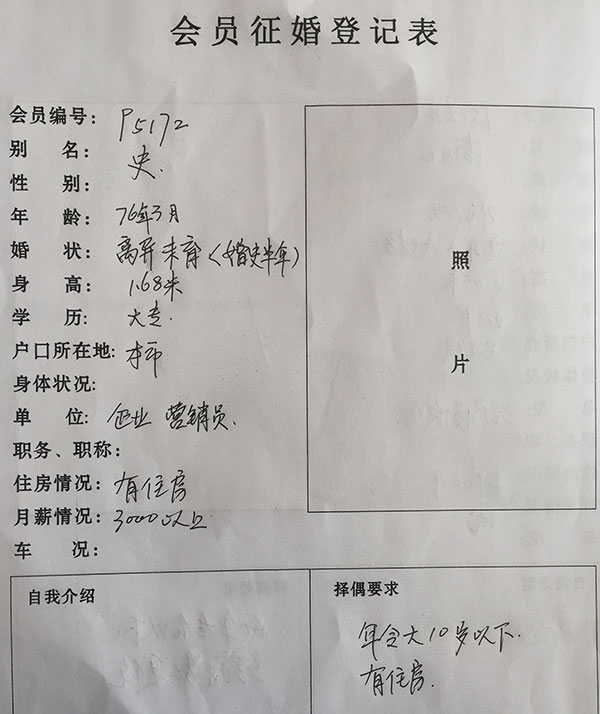 会员征婚登记表
会员编号: P5172
别 名: 史.
性 别:
年 龄: 76年3月
婚 状: 离异未育(婚史半年)
身 高: 1.68米
学 历: 大专.
户口所在地: 本市
身体状况:
单 位: 企业 营销员.
职务、职称:
住房情况: 有住房
月薪情况: 3000以上
车 况:
照
片
自我介绍
择偶要求
年令大10岁以下.
有住房.